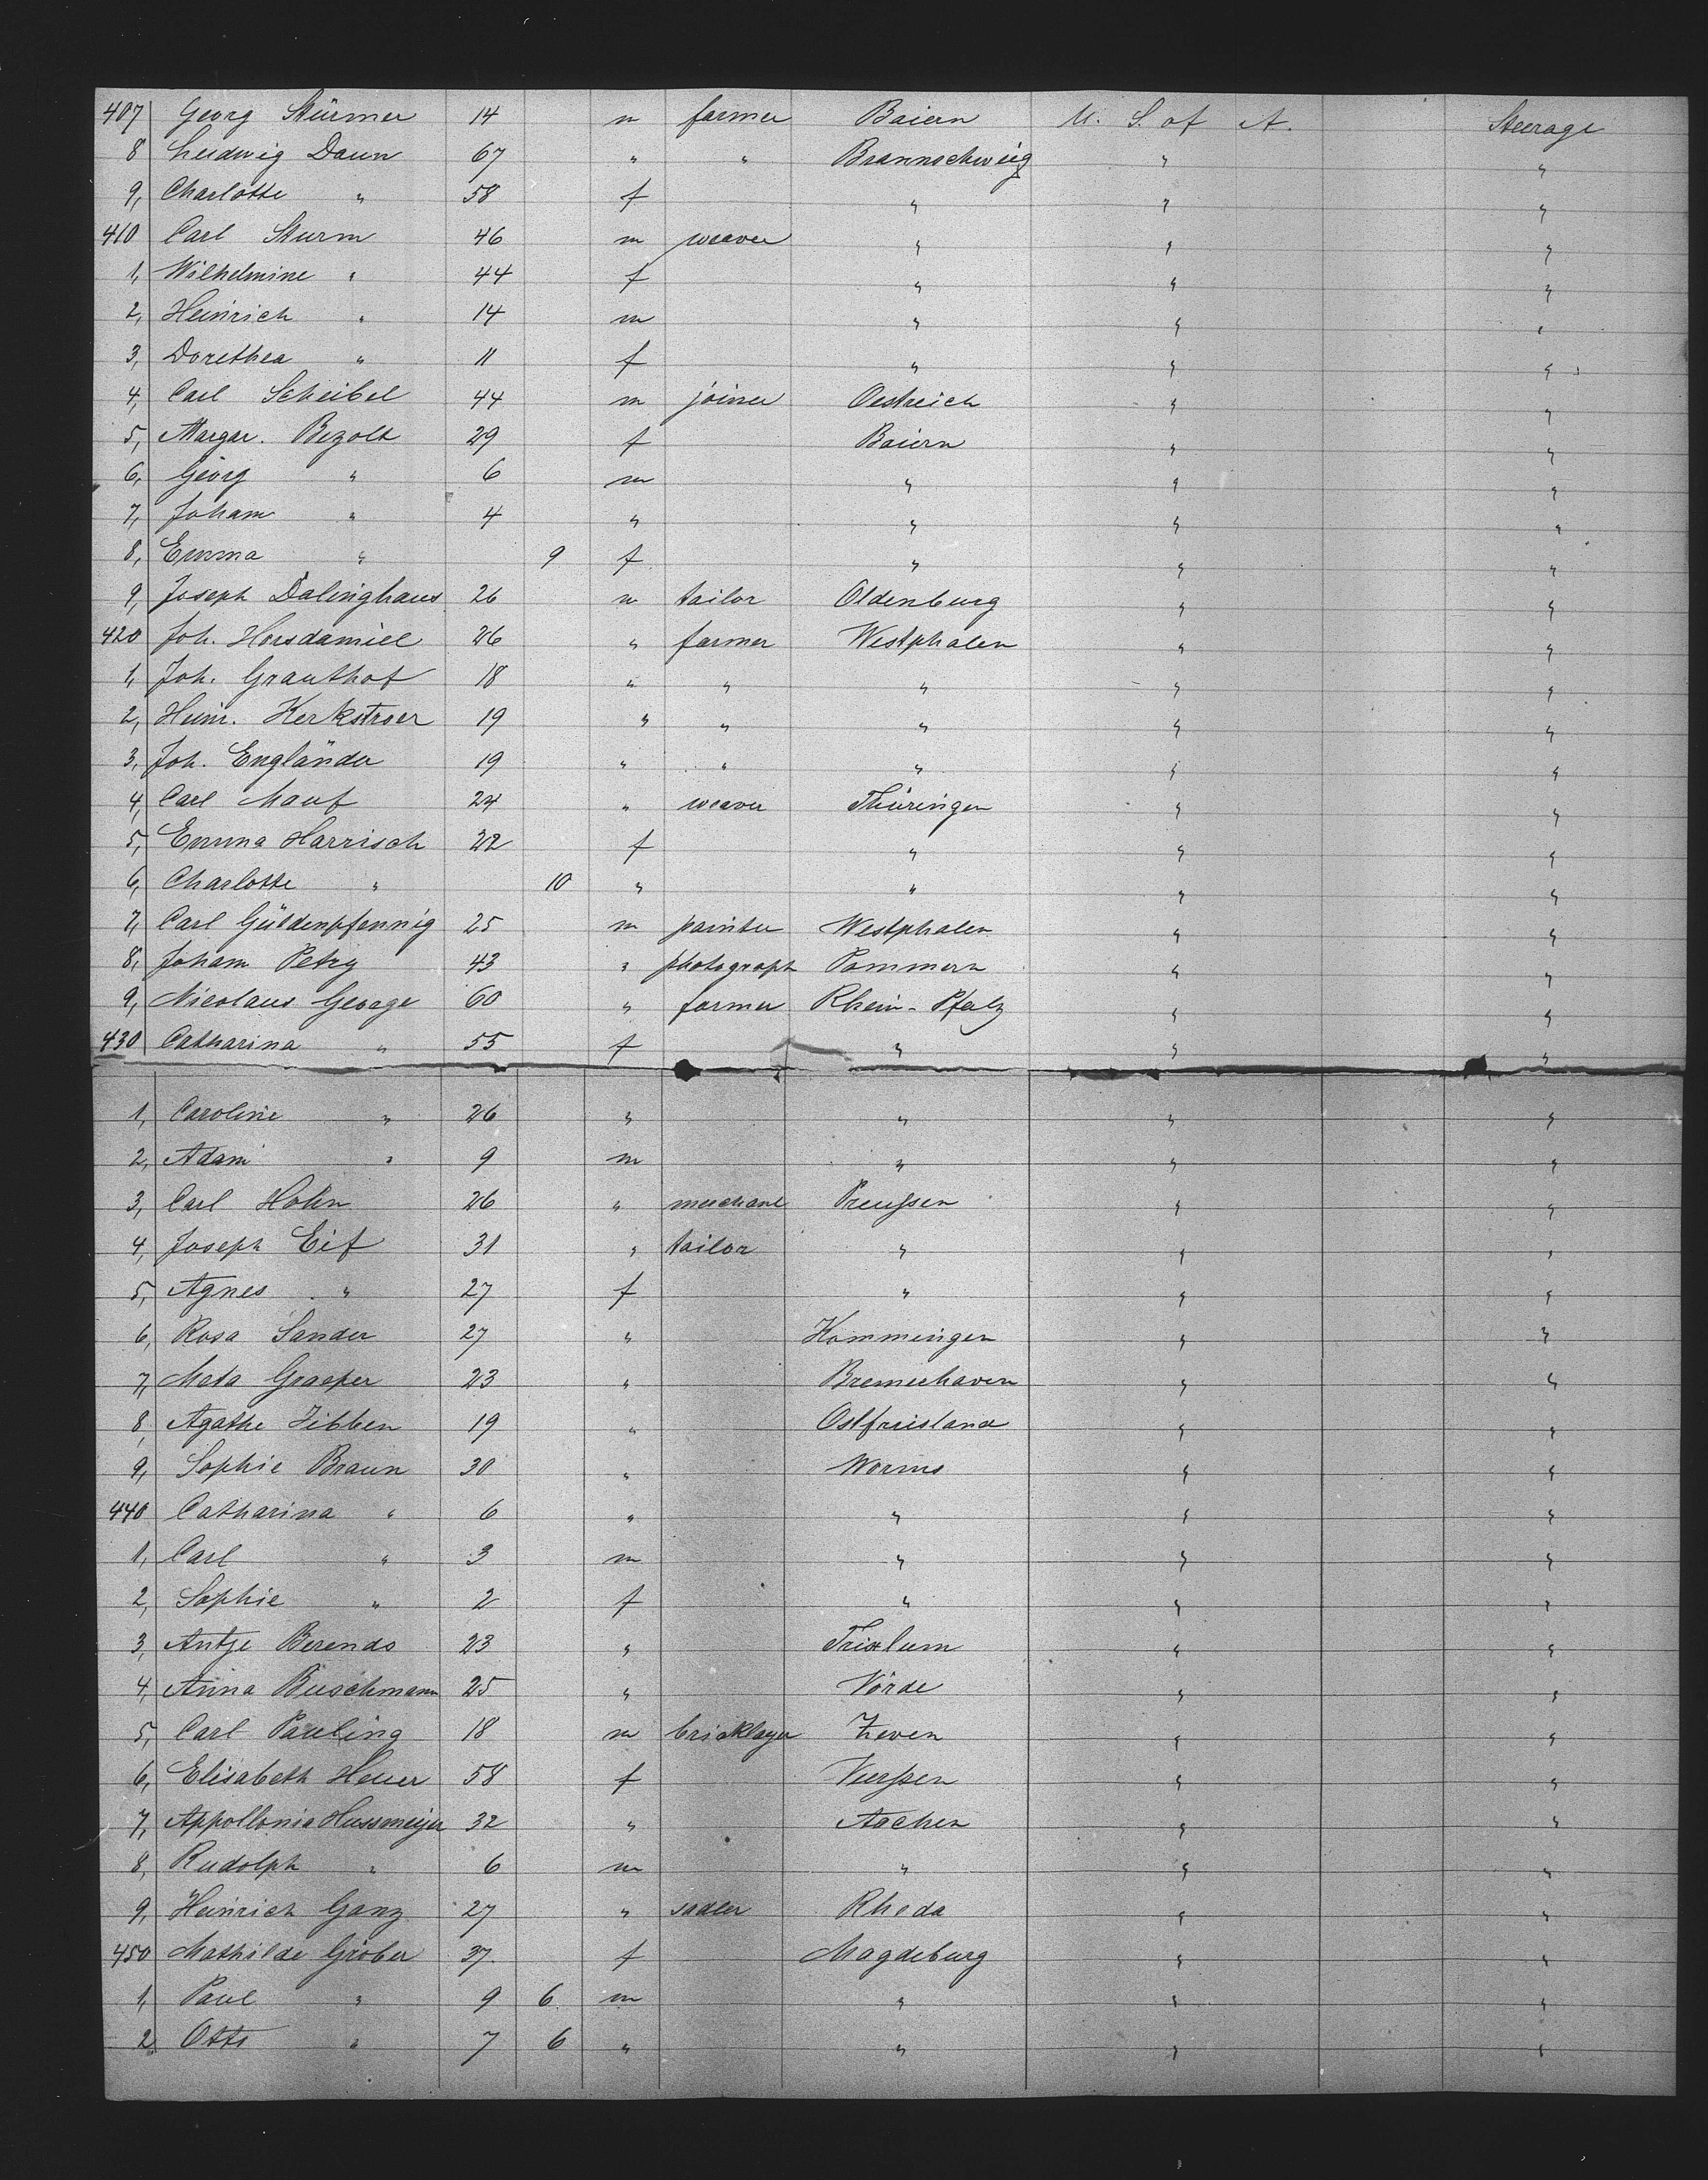 407 Georg Stürmer 14 m farmer Baiern U. S. of A. Steerage
8 Ludwig Daun 67 " " Braunschweig " "
9, Charlotte " 58 f " " "
410 Carl Sturm 46 m weaver " " "
1, Wilhelmine " 44 f " " "
2, Heinrich " 14 m " " "
3, Dorethea " 11 f " " "
4, Carl Scheibel 44 m joiner Oestreich " "
5, Margar. Bezolt 29 f Baiern " "
6, Georg " 6 m " " "
7, Johann " 4 " " " "
8, Emma " 9 f " " "
9, Joseph Dalinghaus 26 m tailor Oldenburg " "
420 Joh. 26 " farmer Westphalen " "
1, Joh. Grauthof 18 " " " " "
2, Heinr. Kerkstroer 19 " " " " "
3, Joh. Engländer 19 " " " " "
4, Carl Mauf 24 " weaver Thüringen " "
5, Emma Harrisch 22 f " " "
6, Charlotte " 10 " " " "
7, Carl Güldenpfennig 25 m painter Westphalen " "
8, Johann Petry 43 " photograph Pommern " "
9, Nicolaus George 60 " farmer Rhein-Pfalz " "
430 Catharina " 55 f " " "
1, Caroline " 26 " " " "
2, Adam " 9 m " " "
3, Carl Hohn 26 " merchant Preußen " "
4, Joseph Eif 31 " tailor " " "
5, Agnes " 27 f " " "
6, Rosa Sander 27 " Kommingen " "
7, Meta Graeper 23 " Bremerhaven " "
8, Agathe Tibben 19 " Ostfriesland " "
9, Sophie Braun 30 " Worms " "
440 Catharina " 6 " " " "
1, Carl " 3 m " " "
2, Sophie " 2 f " " "
3, Antje Berends 23 " " "
4, Anna Buschmann 25 " Vörde " "
5, Carl Pauling 18 m bricklayer Zeven " "
6, Elisabeth Heuer 58 f " "
7, Appollonia Hussmeijer 32 " Aachen " "
8, Rudolph " 6 m " " "
9, Heinrich Ganz 27 " sadler Rheda " "
450 Mathilde Gröber 37 f Magdeburg " "
1, Paul " 9 6 m " " "
2 Otto " 7 6 " " " "